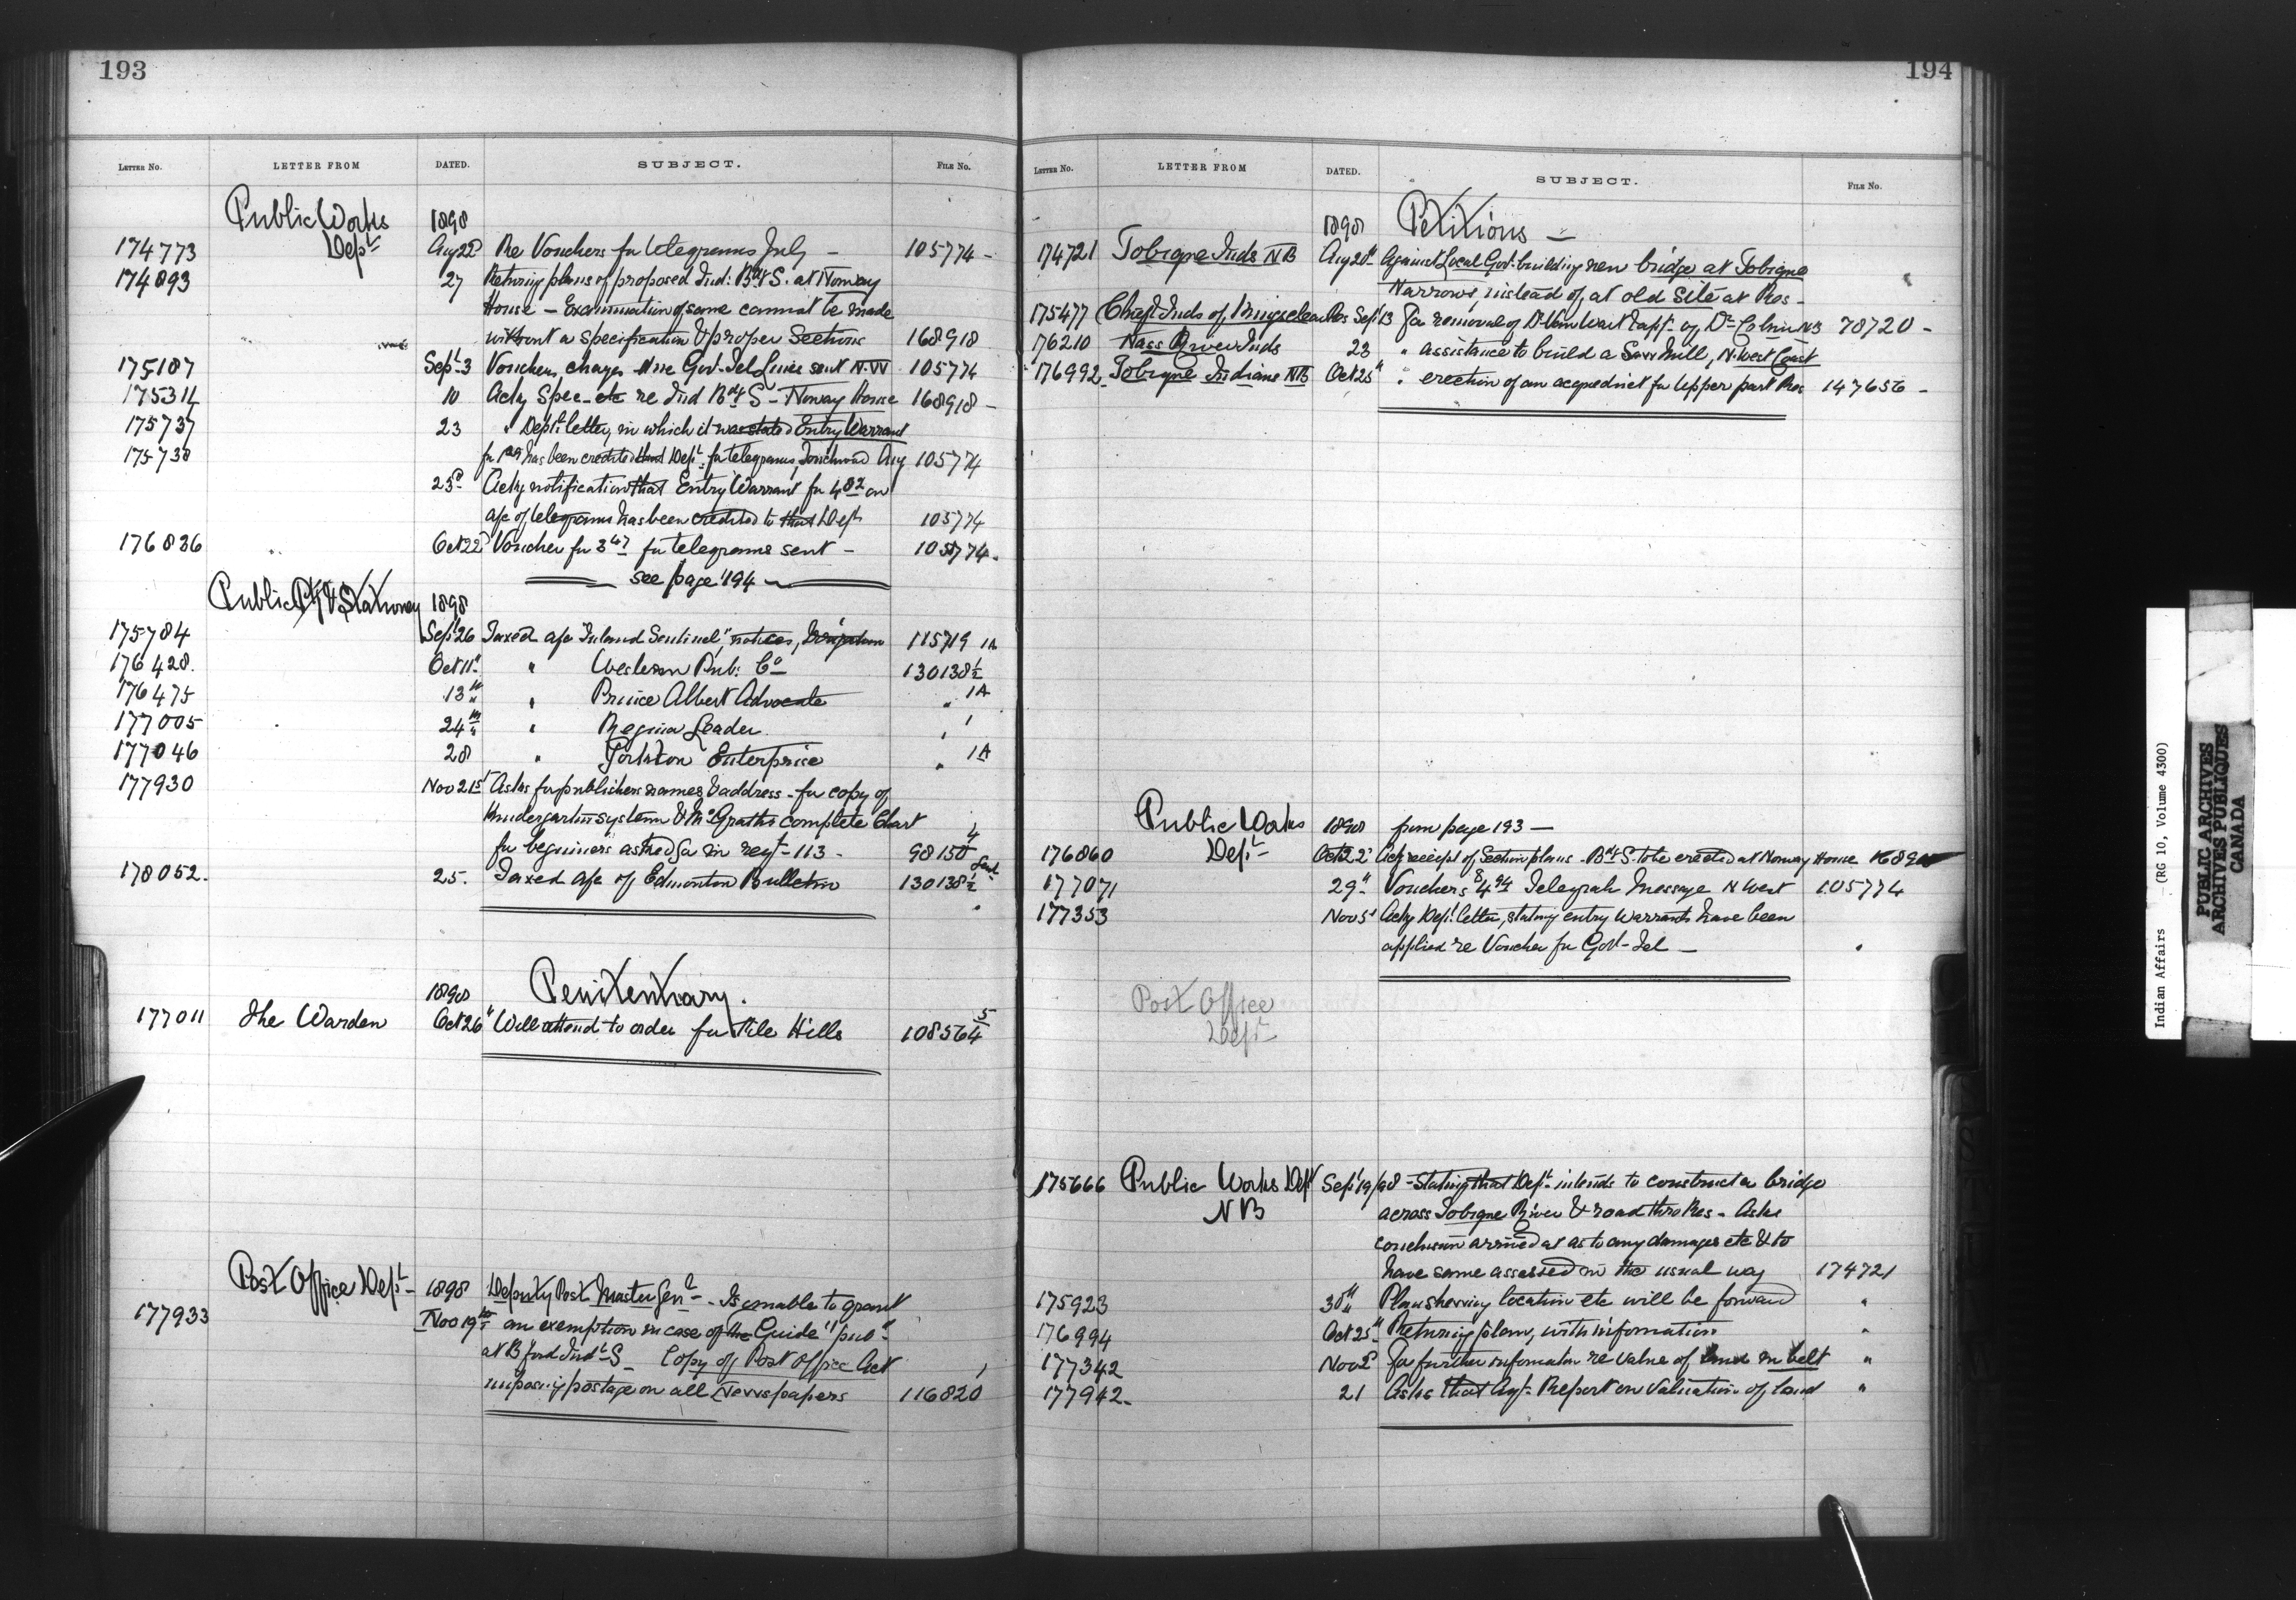 193
LETTER No. LETTER FROM DATED. SUBJECT. FILE No.
Public Works 1898
174773 Dept Aug 22d Re Vouchers for telegrams July - 105774 -
174893 27 Returning plans of proposed Ind: Bdg S. at Norway
House - Examination of same cannot be made
without a specification & proper Sections 168918
175187 Sept 3 Vouchers, charges Govt Tel Lines sent N.W 105774
175314 10 Ackg Spec - etc re Ind Bdg S - Norway House 168918 -
175737 23 " Dept letter, in which it was stated Entry Warrant
175738 for has been credited that Dept for telegrams, Touchwood Aug 105774
23d Ackg notification that Entry Warrant for 4 82 on
a/c of telegrams has been credited to that Dept 105774
176836 " Oct 22d Voucher for 3 47 for telegrams sent - 105774 -
see page 194
Public Ptg & Stationery 1898
175784 Sept 26 Taxed a/c "Inland Sentinel", notices, 115719 1A
176428. Oct 11th " Western Pub: Co 130138½
176475 13th " Prince Albert Advocate " 1A
177005 24th " Regina Leader "
177046 28 " Yorkton Enterprise " 1A
177930 Nov 21st Asks for publishers names & address - for copy of
Kindergarten system & McGraths complete Chart
for beginners asked for in reqt - 113 - 98150 4
178052. 25. Taxed a/c of Edmonton Bulletin 130138½
1898 Penitentiary.
177011 The Warden Oct 26" Will attend to order for File Hills 108564 5
Post Office Dept 1898 Deputy Post Master Genl - Is unable to grant
177933 Nov 19th an exemption in case of the Guide" pubd
at B'ford Indl S - Copy of Post Office Act
imposing postage on all Newspapers 116820
194
LETTER No. LETTER FROM DATED. SUBJECT. FILE No.
1898 Petitions -
174721 Tobique Inds NB Aug 20th Against Local Govt building new bridge at Tobique
Narrows, instead of, at old site at Res -
175477 Chief & Inds of Kingsclear Res Sept 13 For removal of Dr Van Wart & appt of Dr NB 78720 -
176210 Nass River Inds 23 " assistance to build a Saw Mill, N. West Coast
176992 Tobique Indians NB Oct 25" " erection of an acqueduct for Upper part Res 147656 -
Public Works 1898 from page 193 -
176860 Dept Oct 22d Ackg receipt of Section plans - Bdg S. to be erected at Norway House
177071 29" Vouchers Telegraph Message N West 105774
177353 Nov 5" Ackg Dept letter, stating entry warrants have been
applied re Voucher for Govt Tel - "
Post Office
Dept
175666 Public Works Dept Sept 19/98 - Stating that Dept intends to construct a bridge
NB across Tobique River & road thro Res - Asks
conclusion arrived at as to any damages etc & to
have same assessed in the usual way 174721
175923 30th Plan showing location etc will be forward "
176994 Oct 25" Returning plan, with information "
177342 Nov 2d For further information re value of land in belt "
177942 - 21 Asks that Agt Report on valuation of land "
Indian Affairs (RG 10, Volume 4300)
PUBLIC ARCHIVES
ARCHIVES PUBLIQUES
CANADA